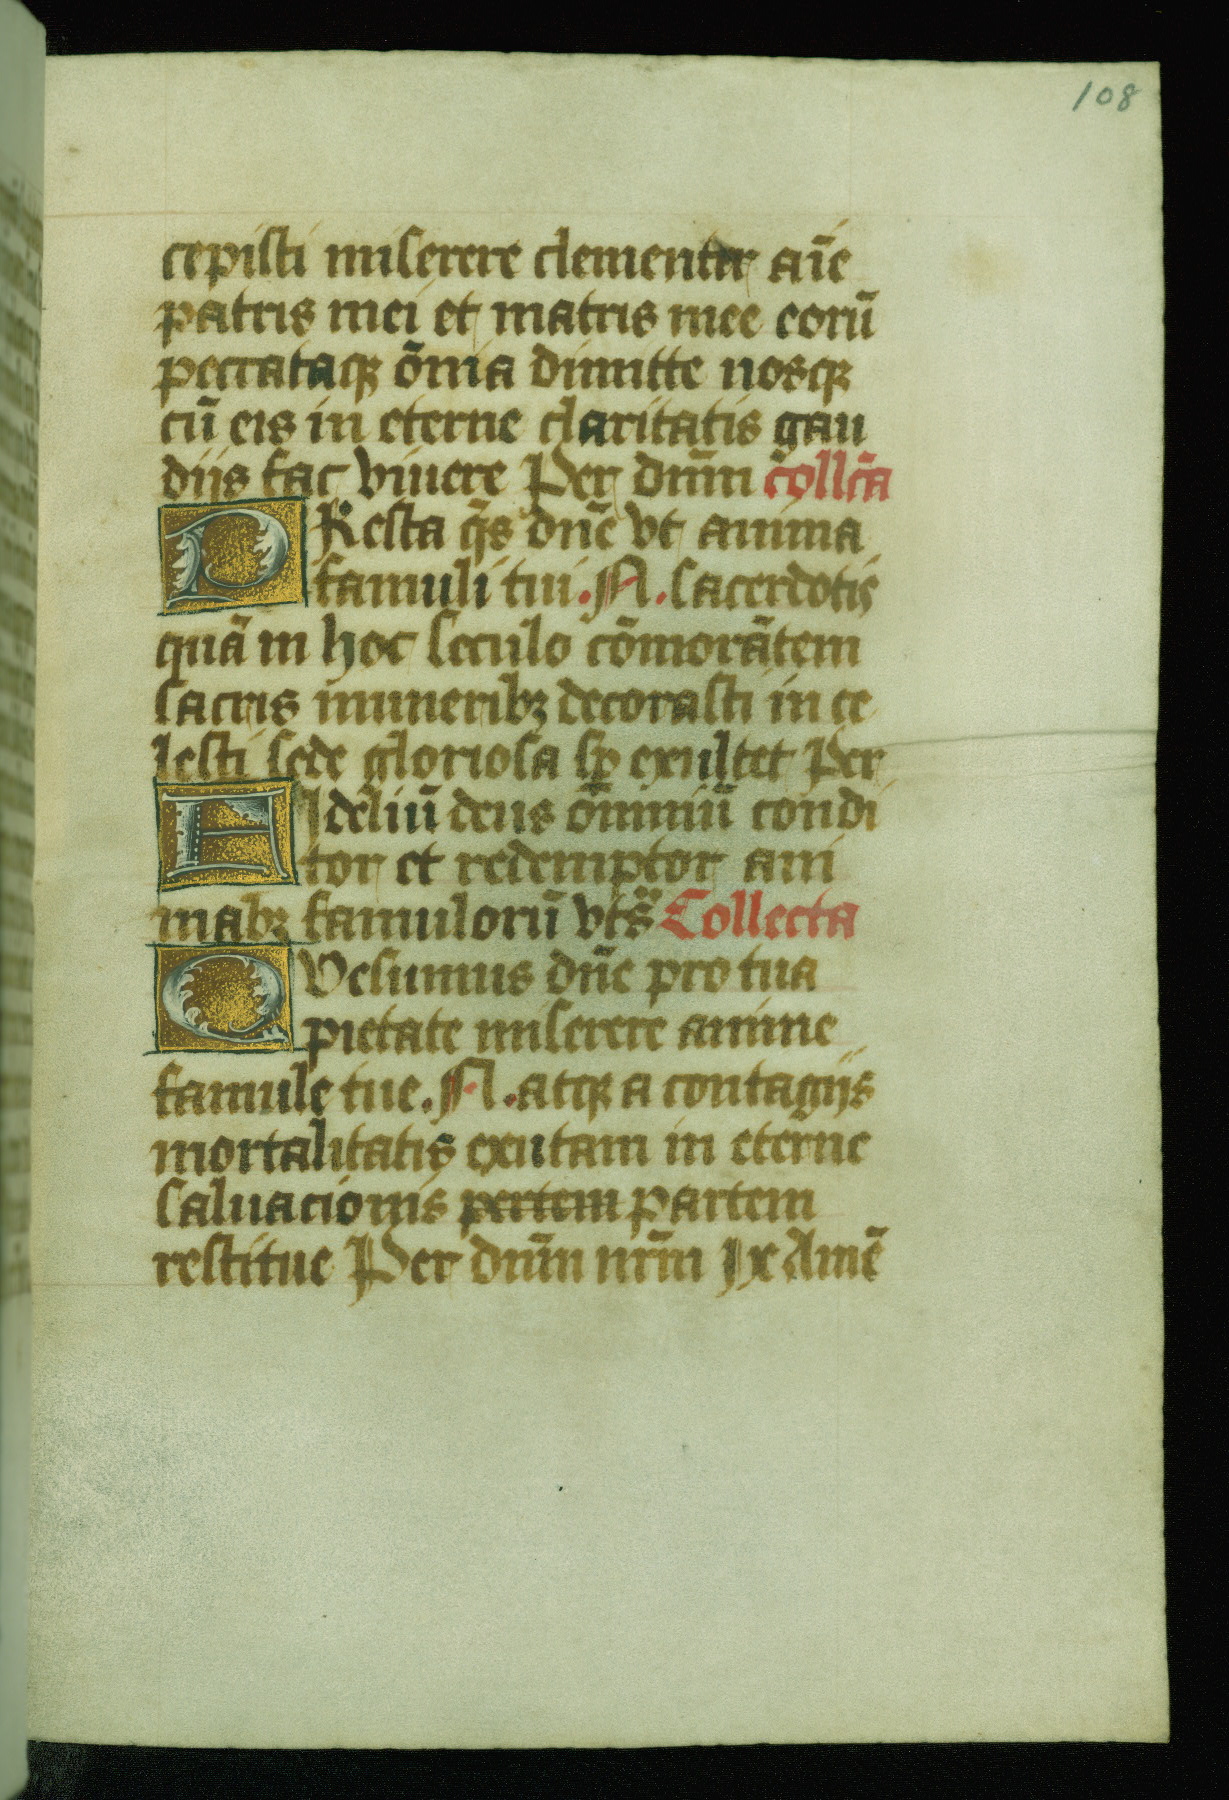 108
cepisti miserere clementer aīe
patris mei et matris mee eorū
peccataqꝫ ōmia dimitte nosqꝫ
cū eis in eterne claritatis gau
diis fac viuere Per dnm̄ collc̄a
PResta q̄s dn̄e vt anima
famuli tui .N. sacerdotis
quā in hoc seculo cōmorātem
sacris muneribꝫ decorasti in ce
lesti sede gloriosa sp̄ exultet Per
FIdeliū deus ōmniū condi
tor et redemptor ani
mabꝫ famulorū vts̄ Collecta
QVesumus dn̄e pro tua
pietate miserere anime
famule tue .N. atqꝫ a contagiis
mortalitatis exutam in eterne
saluacionis pertem partem
restitue Per dnm̄ nrm̄ Ix Amē